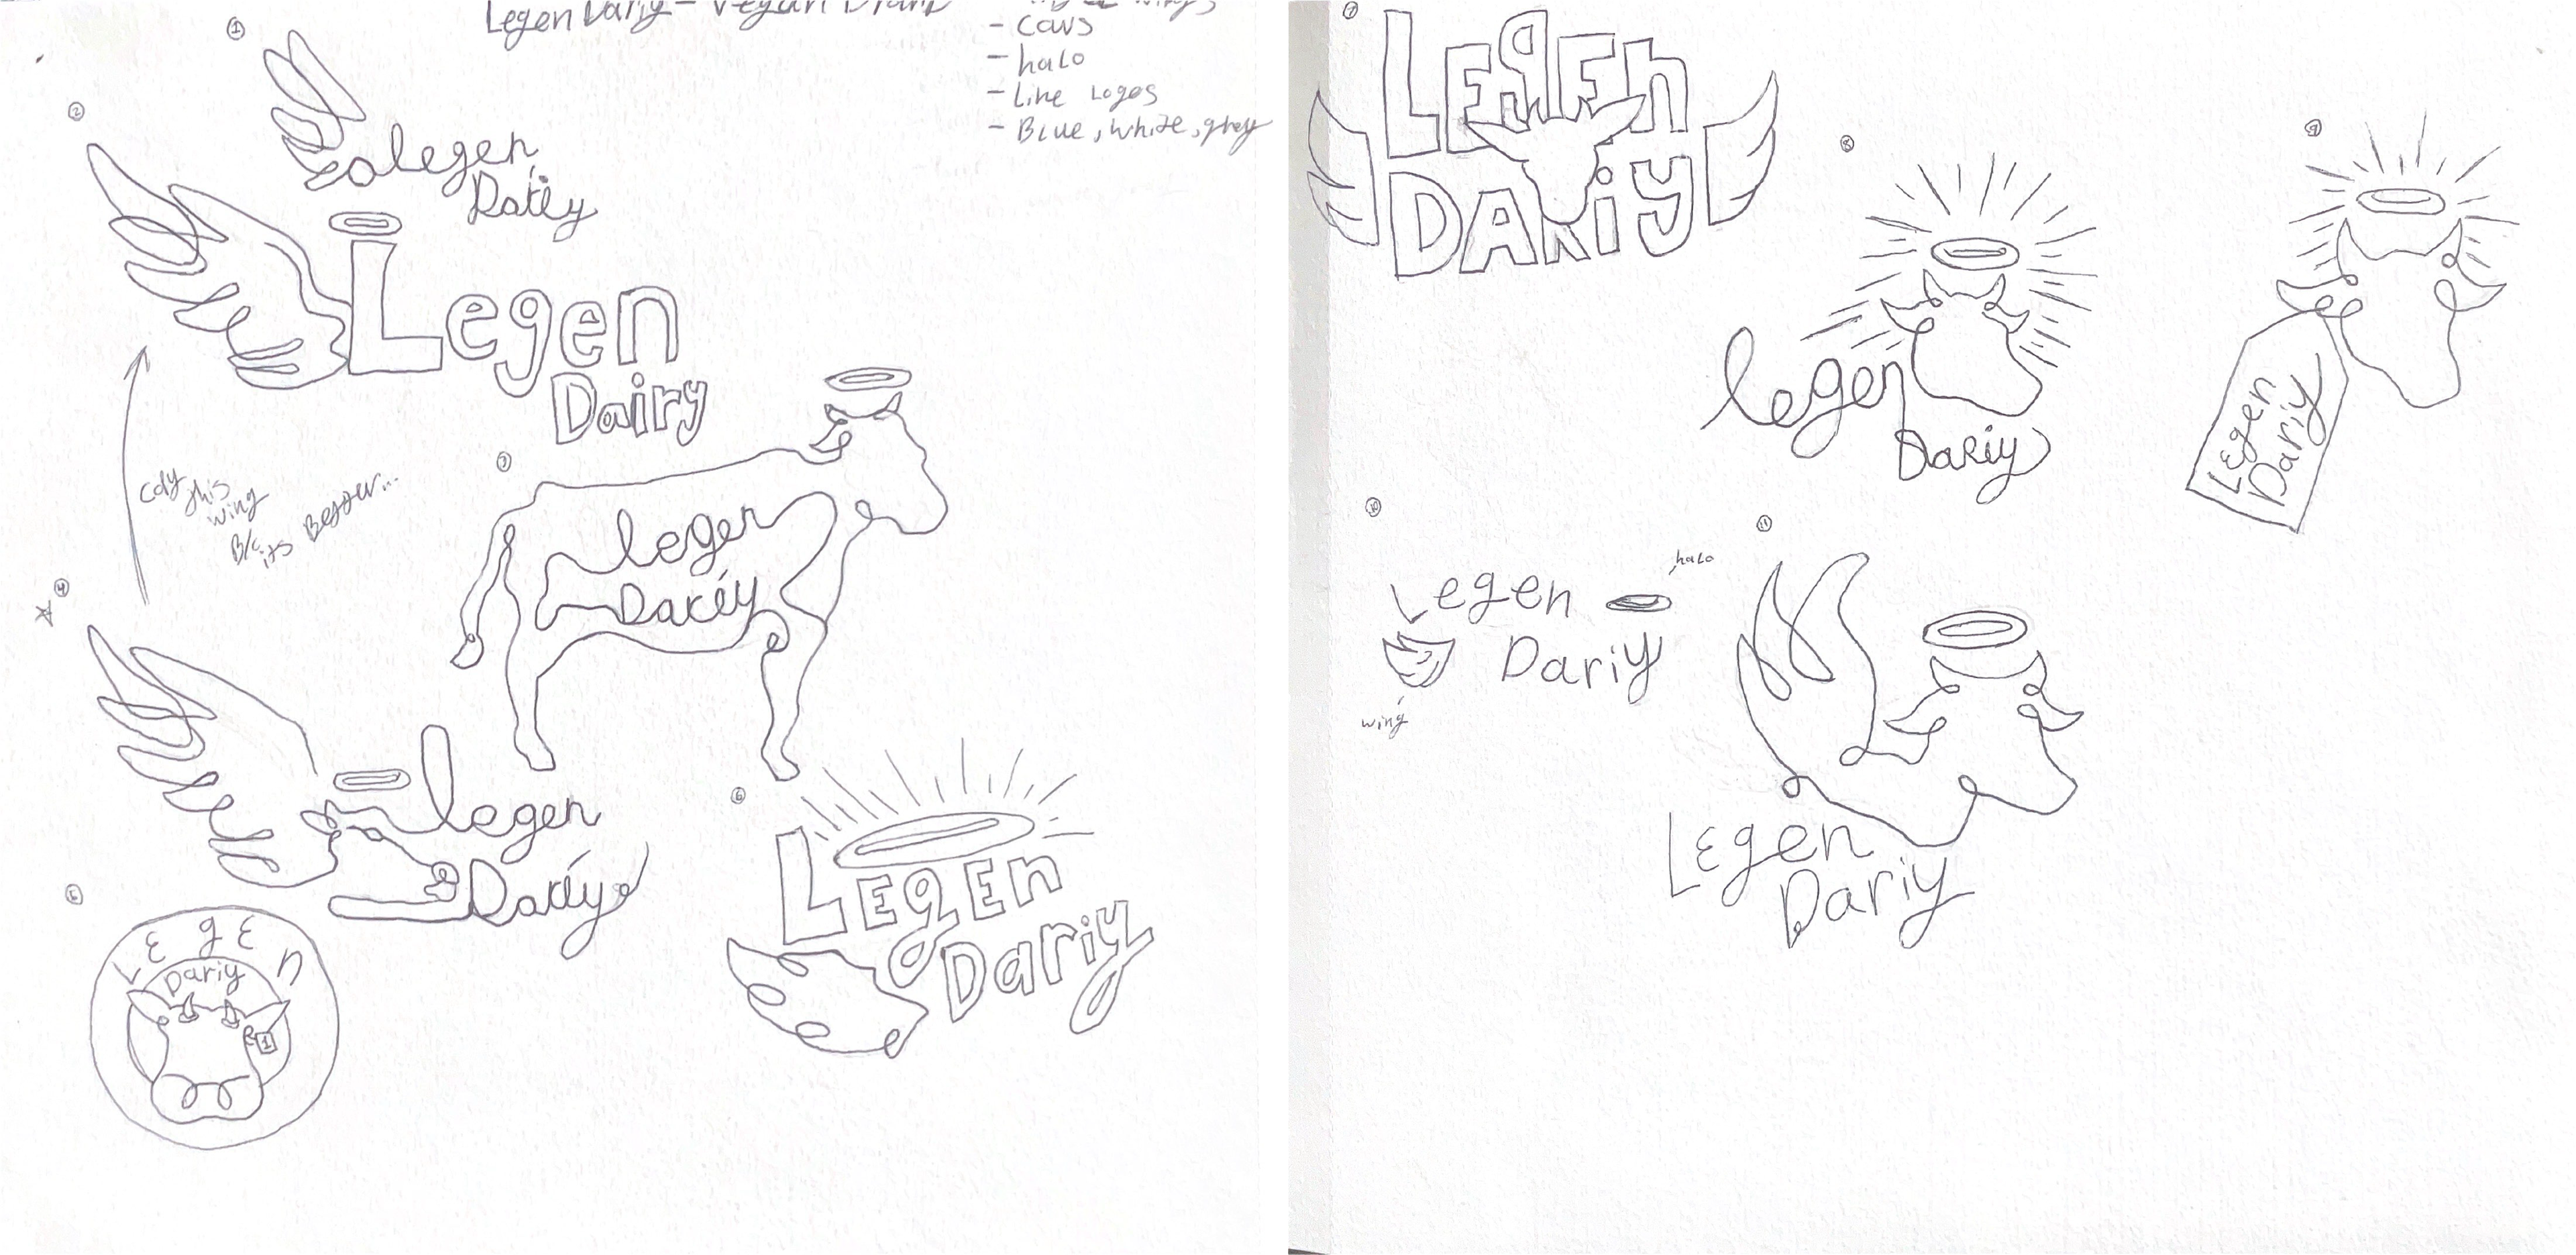 LegenDariy - Vegan Brand
- cows
- halo
- Line Logos
- Blue, white, grey
1
legen
Dariy
2
Legen
Dairy
3
legen
Dariy
this
wing
B/c
its
4
legen
Dariy
5
LEgEn
Dariy
1
6
LEgEn
Dariy
7
LEgEn
DARiy
8
legen
DaRiy
9
Legen
Dariy
10
Legen
halo
Dariy
wing
11
Legen
Dariy